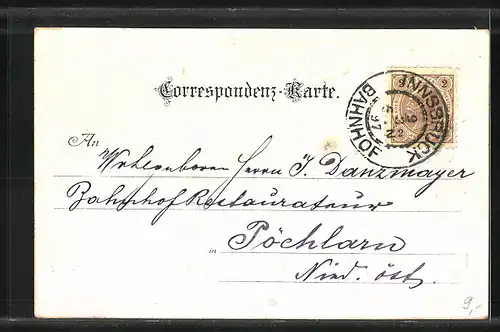 Correspondenz-Karte.
INNSBRUCK
BAHNHOF
97
An
Wohlgeboren Herrn J. Danzmayer
Bahnhof Restaurateur
in Pöchlarn
Nied. öst.
9,-